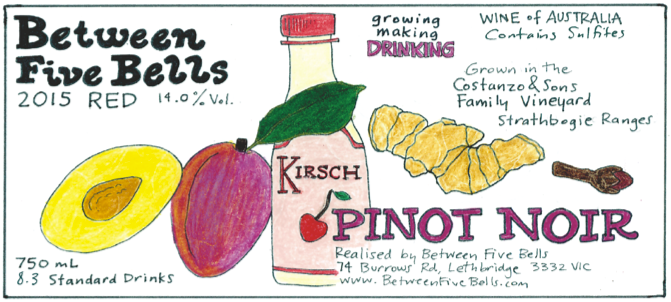 Between
Five Bells
2015 RED 14.0% Vol.
growing
making
DRINKING
WINE of AUSTRALIA
Contains Sulfites
Grown in the
Costanzo & Sons
Family Vineyard
Strathbogie Ranges
KIRSCH
PINOT NOIR
750 mL
8.3 Standard Drinks
Realised by Between Five Bells
74 Burrows Rd, Lethbridge 3332 VIC
www.BetweenFiveBells.com